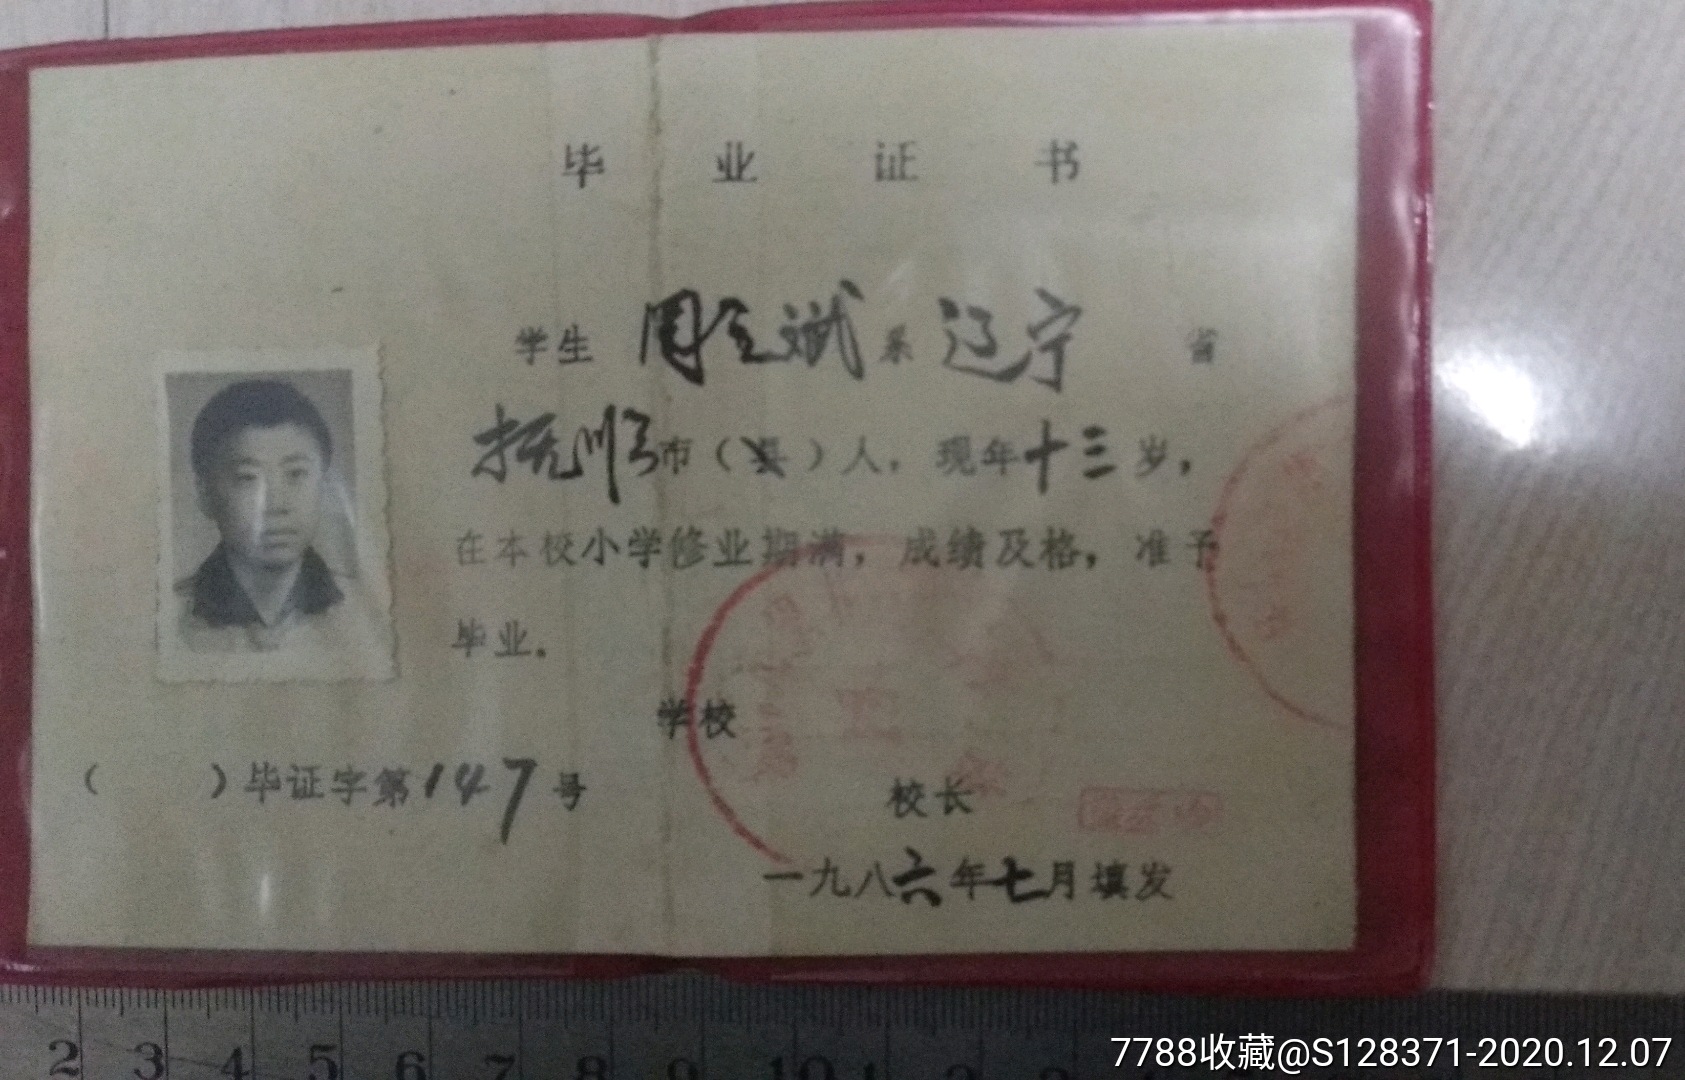 毕业证书
学生 周立斌 系 辽宁 省
抚顺市（县）人，现年十三岁，
在本校小学修业期满，成绩及格，准予
毕业．
学校
（ ）毕证字第147号
校长
一九八六年七月填发
2 3 4 5 6 7 8 9 10
7788收藏@S128371-2020.12.07